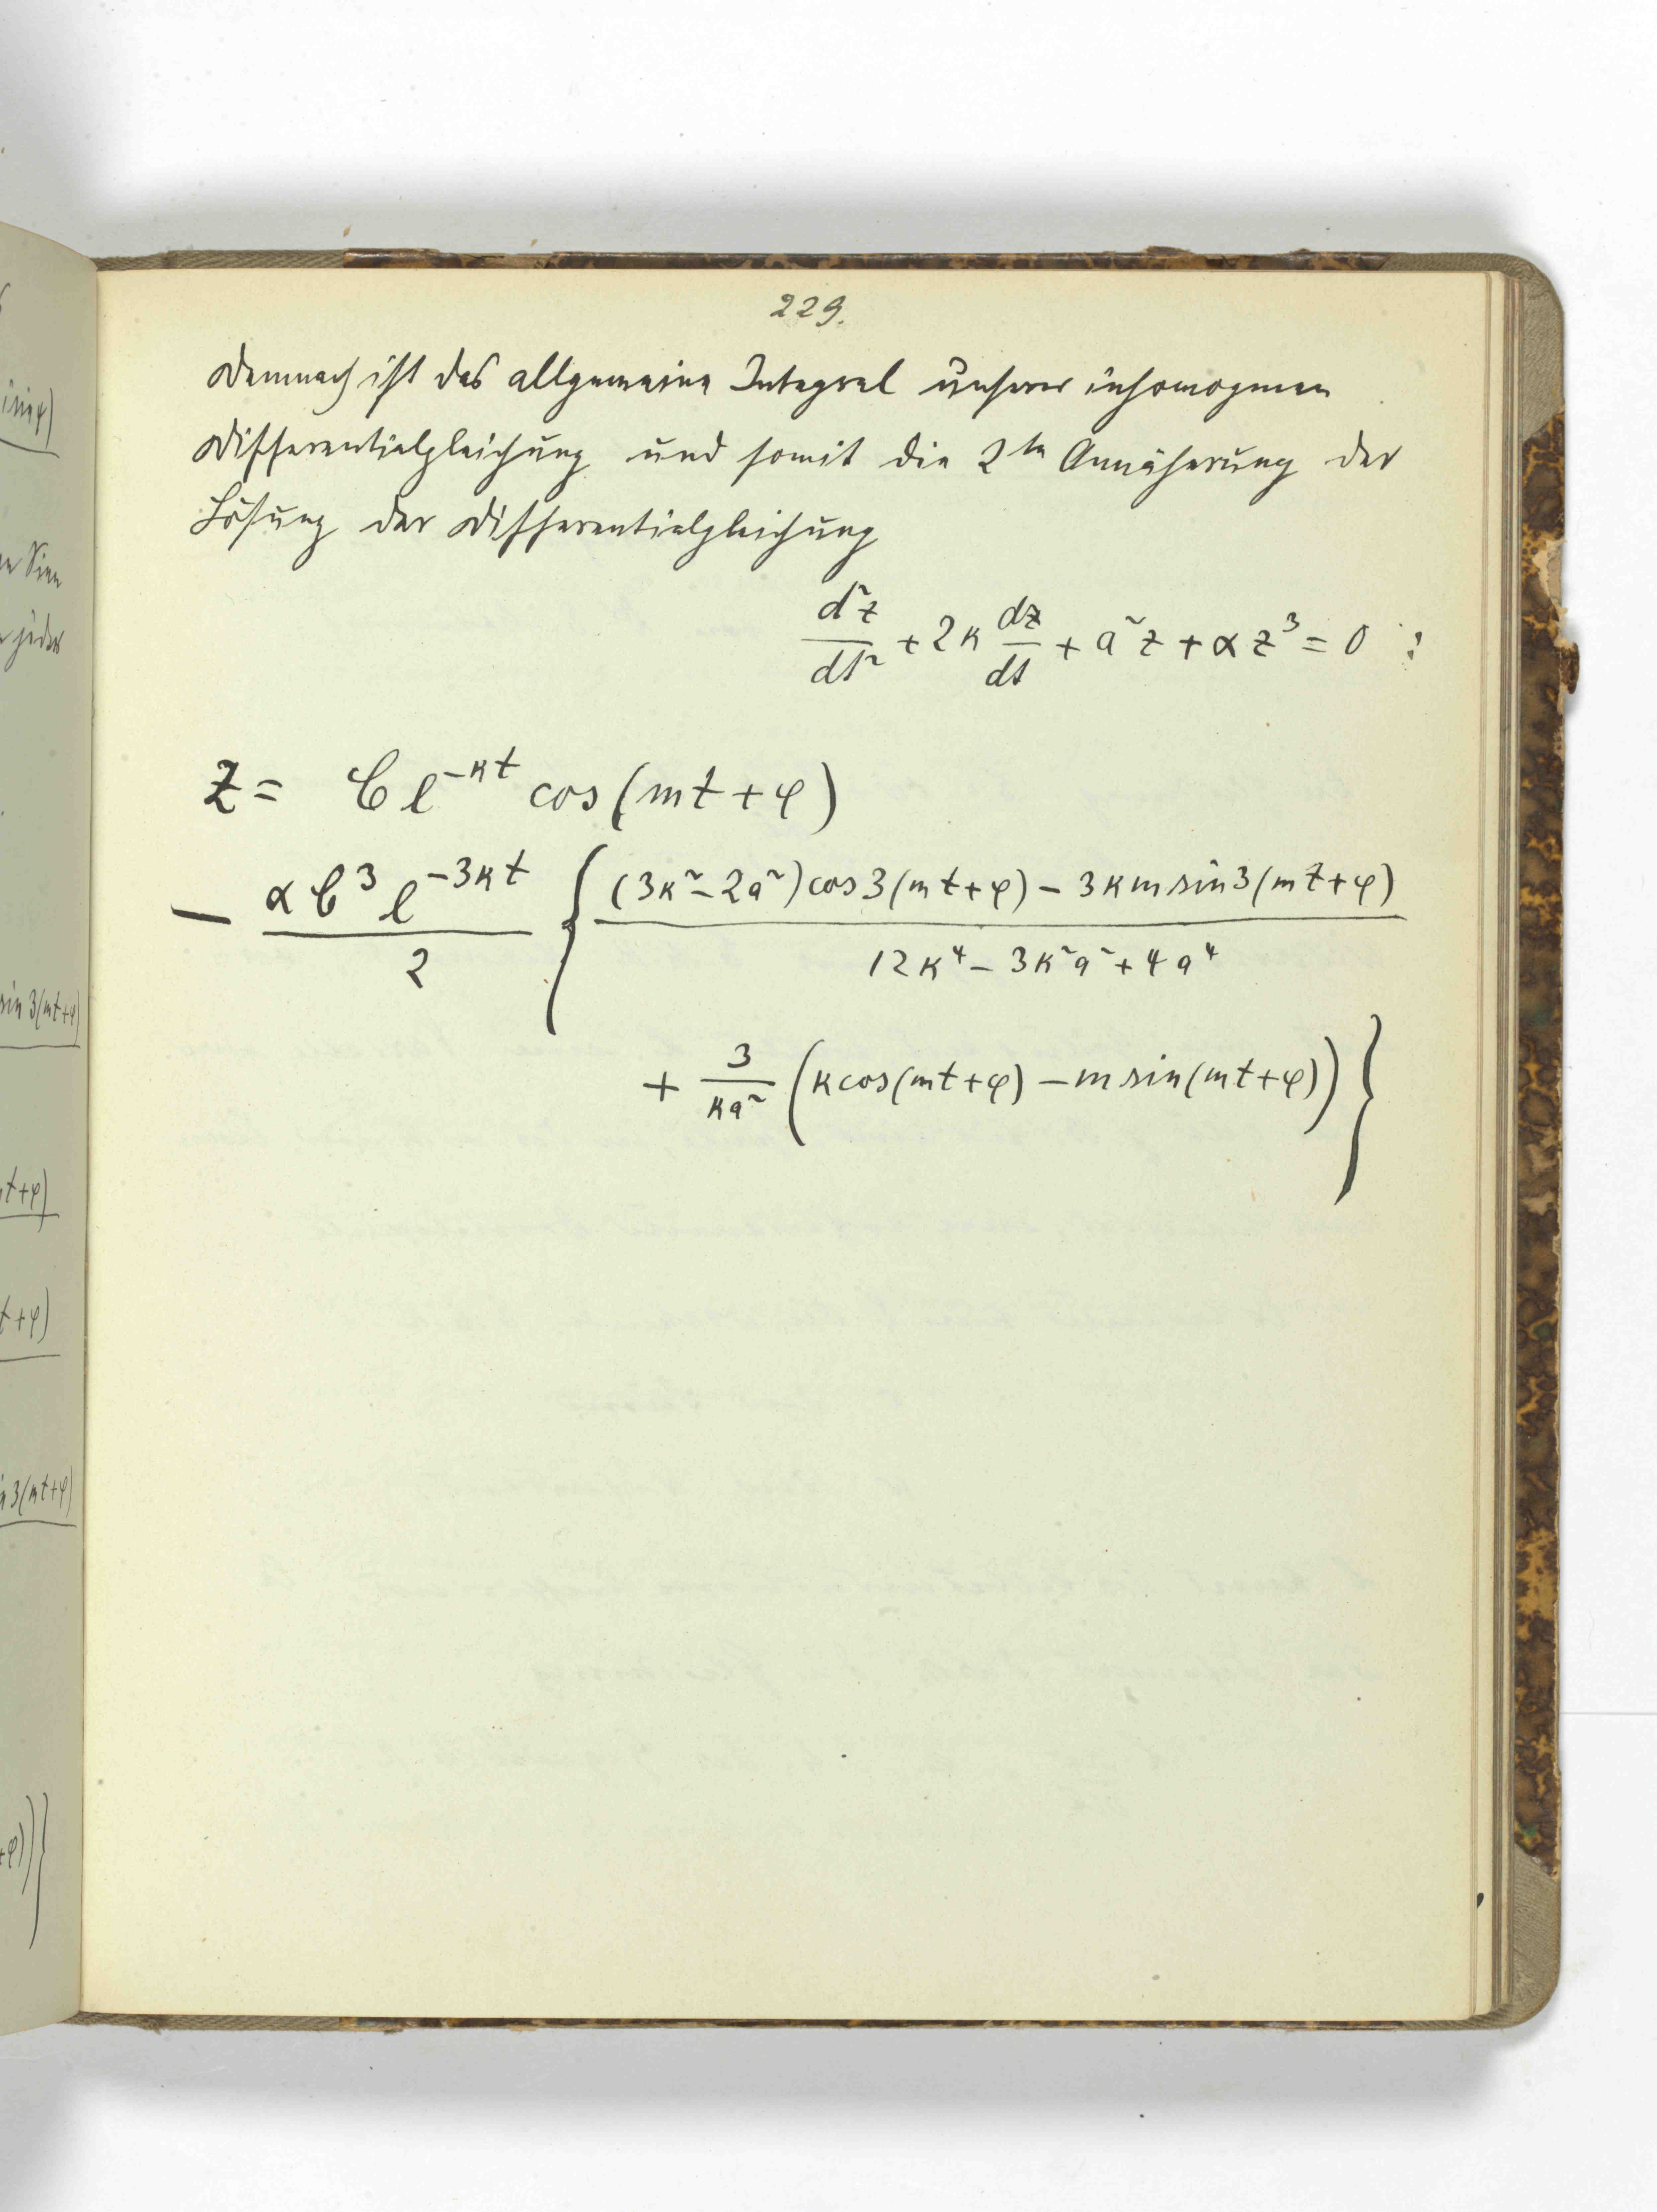 229.
Demnach ist das allgemeine Integral unserer inhomogenen
Differentialgleichung und somit die 2te Annäherung der
Lösung der Differentialgleichung
d²z/dt² + 2κ dz/dt + a²z + αz³ = 0 :
z = C e^{-κt} cos(mt+φ)
− αC³e^{-3κt}/2 { ((3κ²−2a²)cos3(mt+φ) − 3κm sin3(mt+φ))/(12κ⁴−3κ²a²+4a⁴)
+ 3/(κa²) (κcos(mt+φ) − m sin(mt+φ)) }
sin 3(mt+φ)